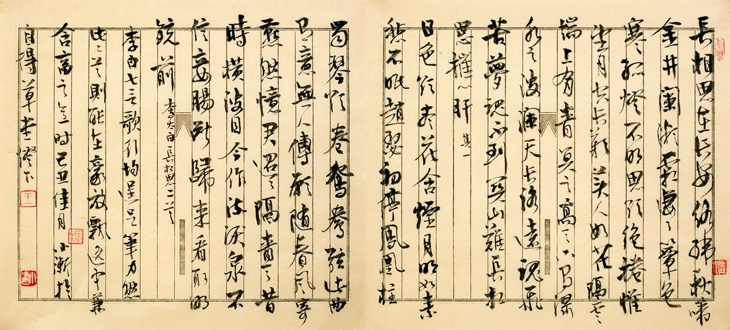 長相思在長安絡緯秋啼
金井闌微霜淒淒簟色
寒孤燈不明思欲絕捲帷
望月空長嘆美人如花隔雲
端上有青冥之高天下有淥
水之波瀾天長路遠魂飛
苦夢魂不到關山難長相
思摧心肝 其一
日色欲盡花含煙月明如素
愁不眠趙瑟初停鳳凰柱
蜀琴欲奏鴛鴦弦此曲
有意無人傳願隨春風寄
燕然憶君迢迢隔青天昔
時橫波目今作流淚泉不
信妾腸斷歸來看取明
鏡前 李太白長相思二首
李白七言歌行均逞足筆力然
此二首則能在豪放飄逸中兼
含蓄之時己丑佳月小漸於
自得草堂燈下